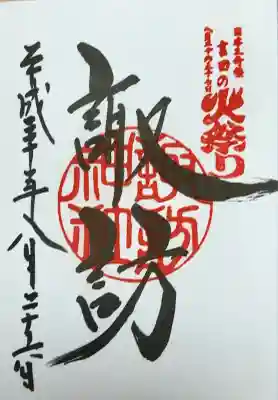 日本三奇祭
吉田の
火祭り
八月二十六日二十七日
諏訪
諏訪神社
平成二十五年八月二十六日